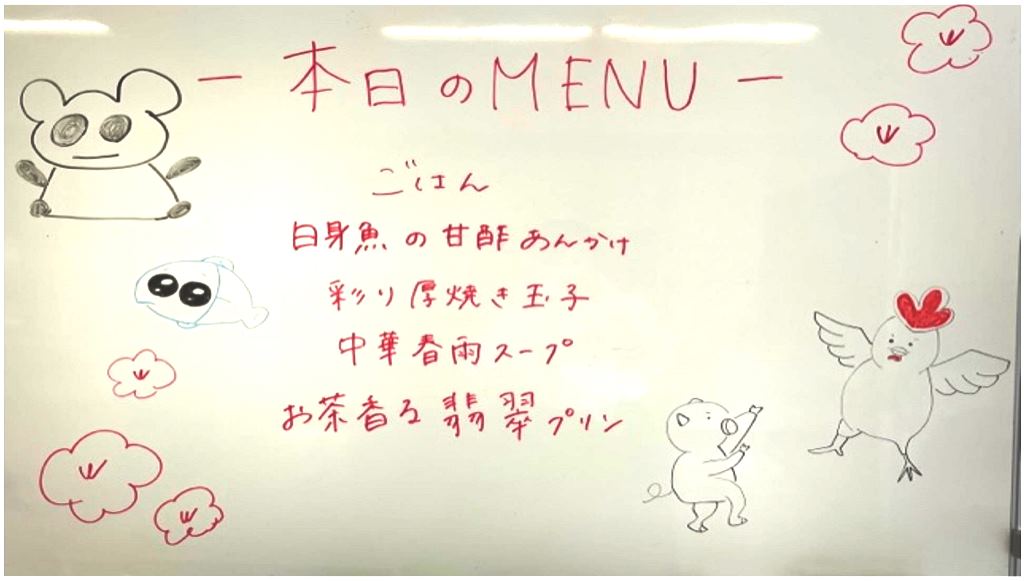 — 本日のMENU —
ごはん
白身魚の甘酢あんかけ
彩り厚焼き玉子
中華春雨スープ
お茶香る翡翠プリン